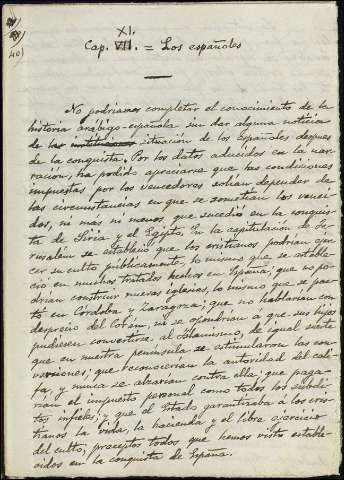 40)
XI.
Cap. VII. = Los españoles
No podriamos completar el conocimiento de la
historia arábigo-española sin dar alguna noticia
de la situación de los españoles despues
de la conquista. Por los datos aducidos en la nar-
ración, ha podido apreciarse que las condiciones
impuestas por los vencedores solian depender de
las circunstancias en que se sometian los venci-
dos, ni más ni menos que sucedió en la conquis-
ta de Siria y el Egipto. En la capitulación de Je-
rusalem se estableció que los cristianos podrian ejer-
cer su culto publicamente, lo mismo que se estable-
ció en muchos tratados hechos en España; que no po-
drian construir nuevas iglesias, lo mismo que se pac-
tó en Córdoba y Zaragoza; que no hablarian con
desprecio del Coran, ni se opondrian á que sus hijos
pudiesen convertirse al Islamismo, de igual suerte
que en nuestra peninsula se estimularon las con-
versiones; que reconocerian la autoridad del cali-
fa, y nunca se alzarian contra ella; que paga-
rian el impuesto personal como todos los súbdi-
tos infieles; y que el Estado garantizaba á los cris-
tianos la vida, la hacienda y el libre ejercicio
del culto; preceptos todos que hemos visto estable-
cidos en la conquista de España.